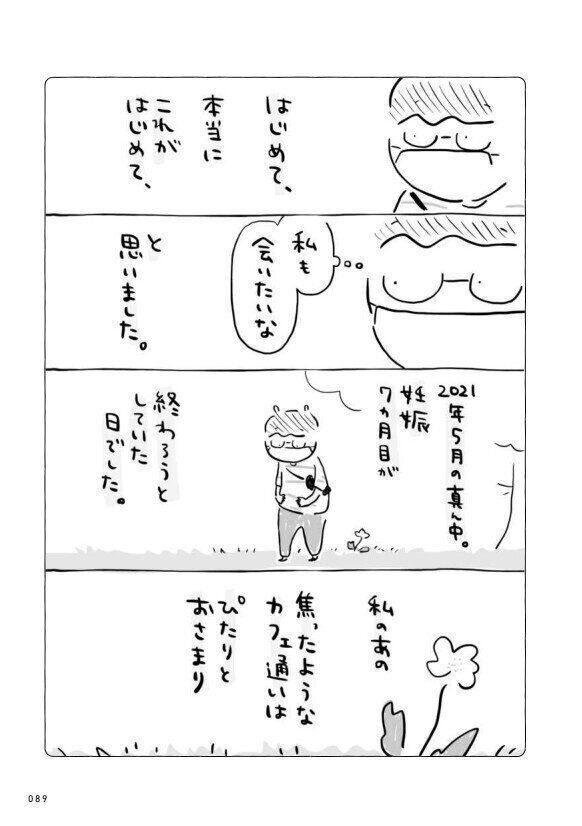 はじめて、
本当に
これが
はじめて、
私も
会いたいな
と
思いました。
2021年5月の真ん中。
妊娠
7ヵ月目が
終わろうと
していた
日でした。
私のあの
焦ったような
カフェ通いは
ぴたりと
おさまり
089